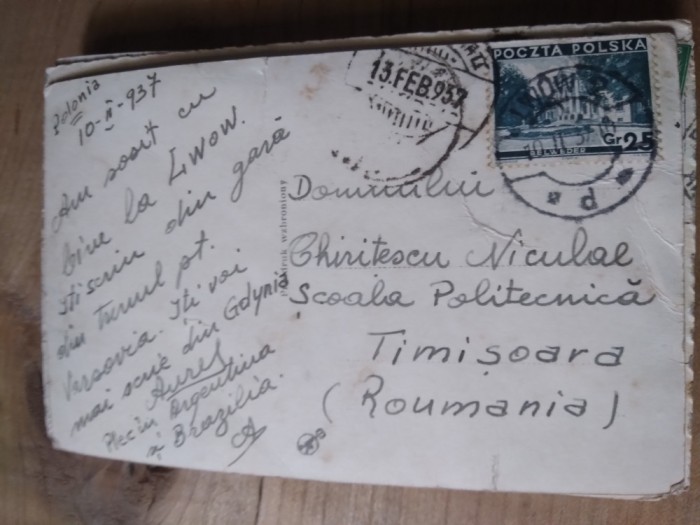 Polonia
10-II-937
Am sosit cu
bine la Lwow.
Iti scriu din gară
din trenul pt.
Varsovia. Iti voi
mai scrie din Gdynia
Aurel
Plec in Argentina
si Brazilia.
wzbroniony
13.FEB.937
POCZTA POLSKA
BELWEDER
Gr 25
LWÓW 2
Domnului
Chiritescu Niculae
Scoala Politecnică
Timișoara
(Roumania)